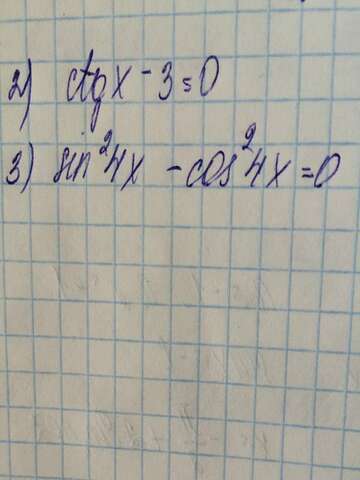 2) ctgx - 3 = 0
3) sin²4x - cos²4x = 0